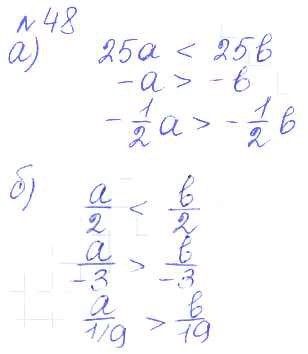 №48
а) 25a < 25b
-a > -b
-1/2 a > -1/2 b
б) a/2 < b/2
a/-3 > b/-3
a/1/9 > b/19